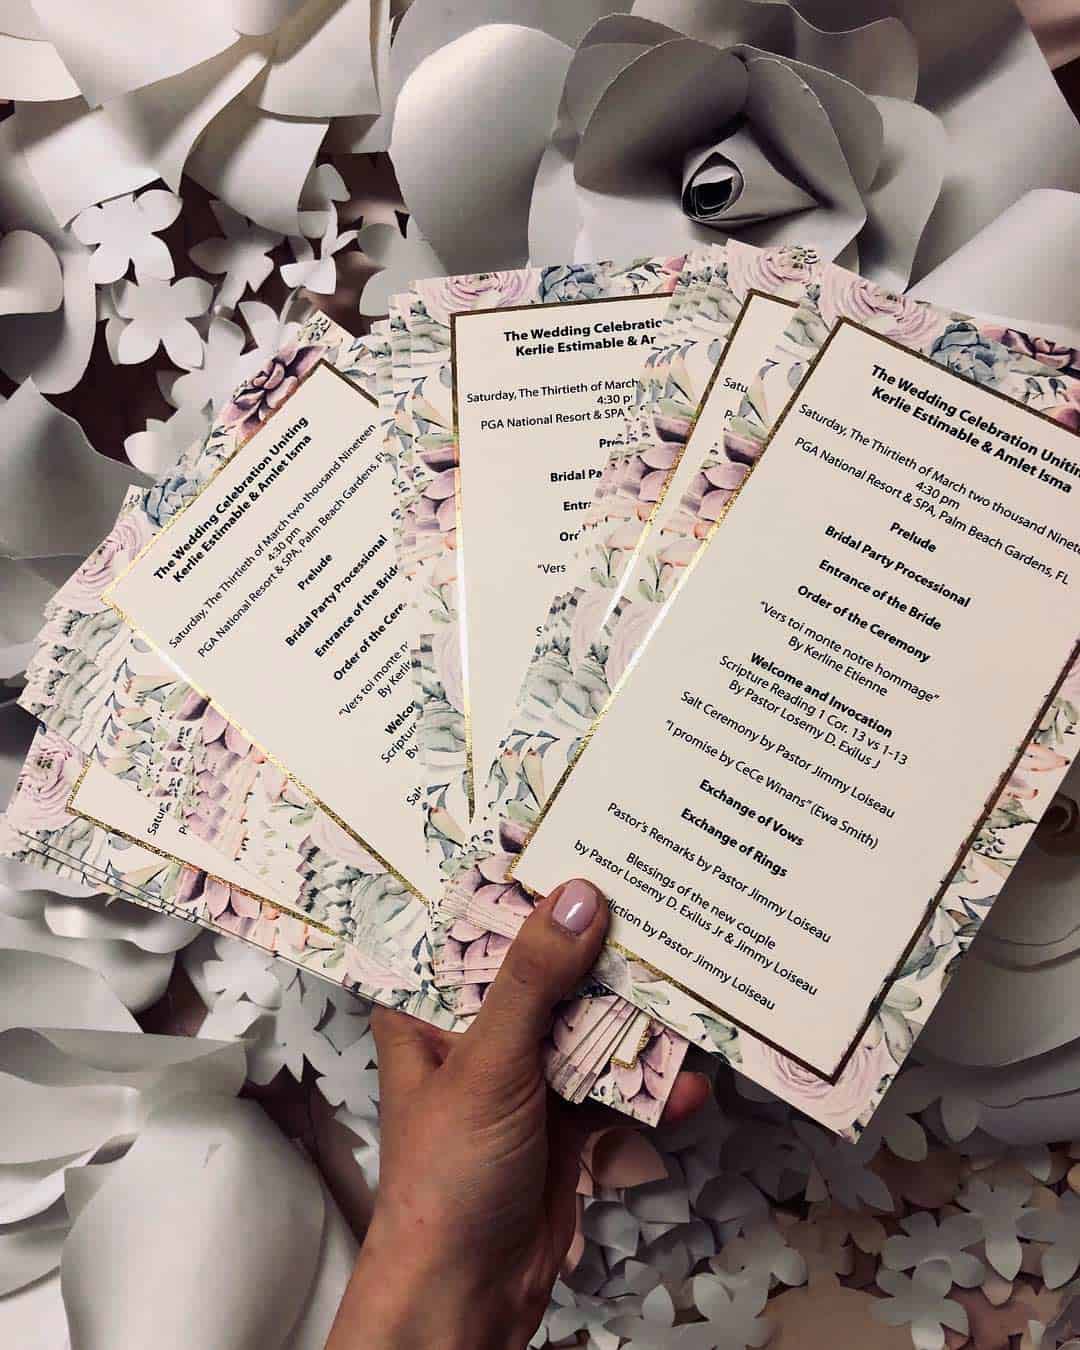 The Wedding Celebration Uniting
Kerlie Estimable & Amlet Isma
Saturday, The Thirtieth of March two thousand Nineteen
4:30 pm
PGA National Resort & SPA, Palm Beach Gardens, FL
Prelude
Bridal Party Processional
Entrance of the Bride
Order of the
"Vers toi monte notre
By
Scripture
By
The Wedding
Kerlie Estimable &
Saturday, The Thirtieth of March
4:30
PGA National Resort & SPA
Bridal
"Vers
The Wedding Celebration
Kerlie Estimable & Amlet Isma
Saturday, The Thirtieth of March two thousand
4:30 pm
PGA National Resort & SPA, Palm Beach Gardens, FL
Prelude
Bridal Party Processional
Entrance of the Bride
Order of the Ceremony
"Vers toi monte notre hommage"
By Kerline Etienne
Welcome and Invocation
Scripture Reading 1 Cor. 13 vs 1-13
By Pastor Losemy D. Exilus J
Salt Ceremony by Pastor Jimmy Loiseau
"I promise by CeCe Winans" (Ewa Smith)
Exchange of Vows
Exchange of Rings
Pastor's Remarks by Pastor Jimmy Loiseau
Blessings of the new couple
by Pastor Losemy D. Exilus Jr & Jimmy Loiseau
by Pastor Jimmy Loiseau